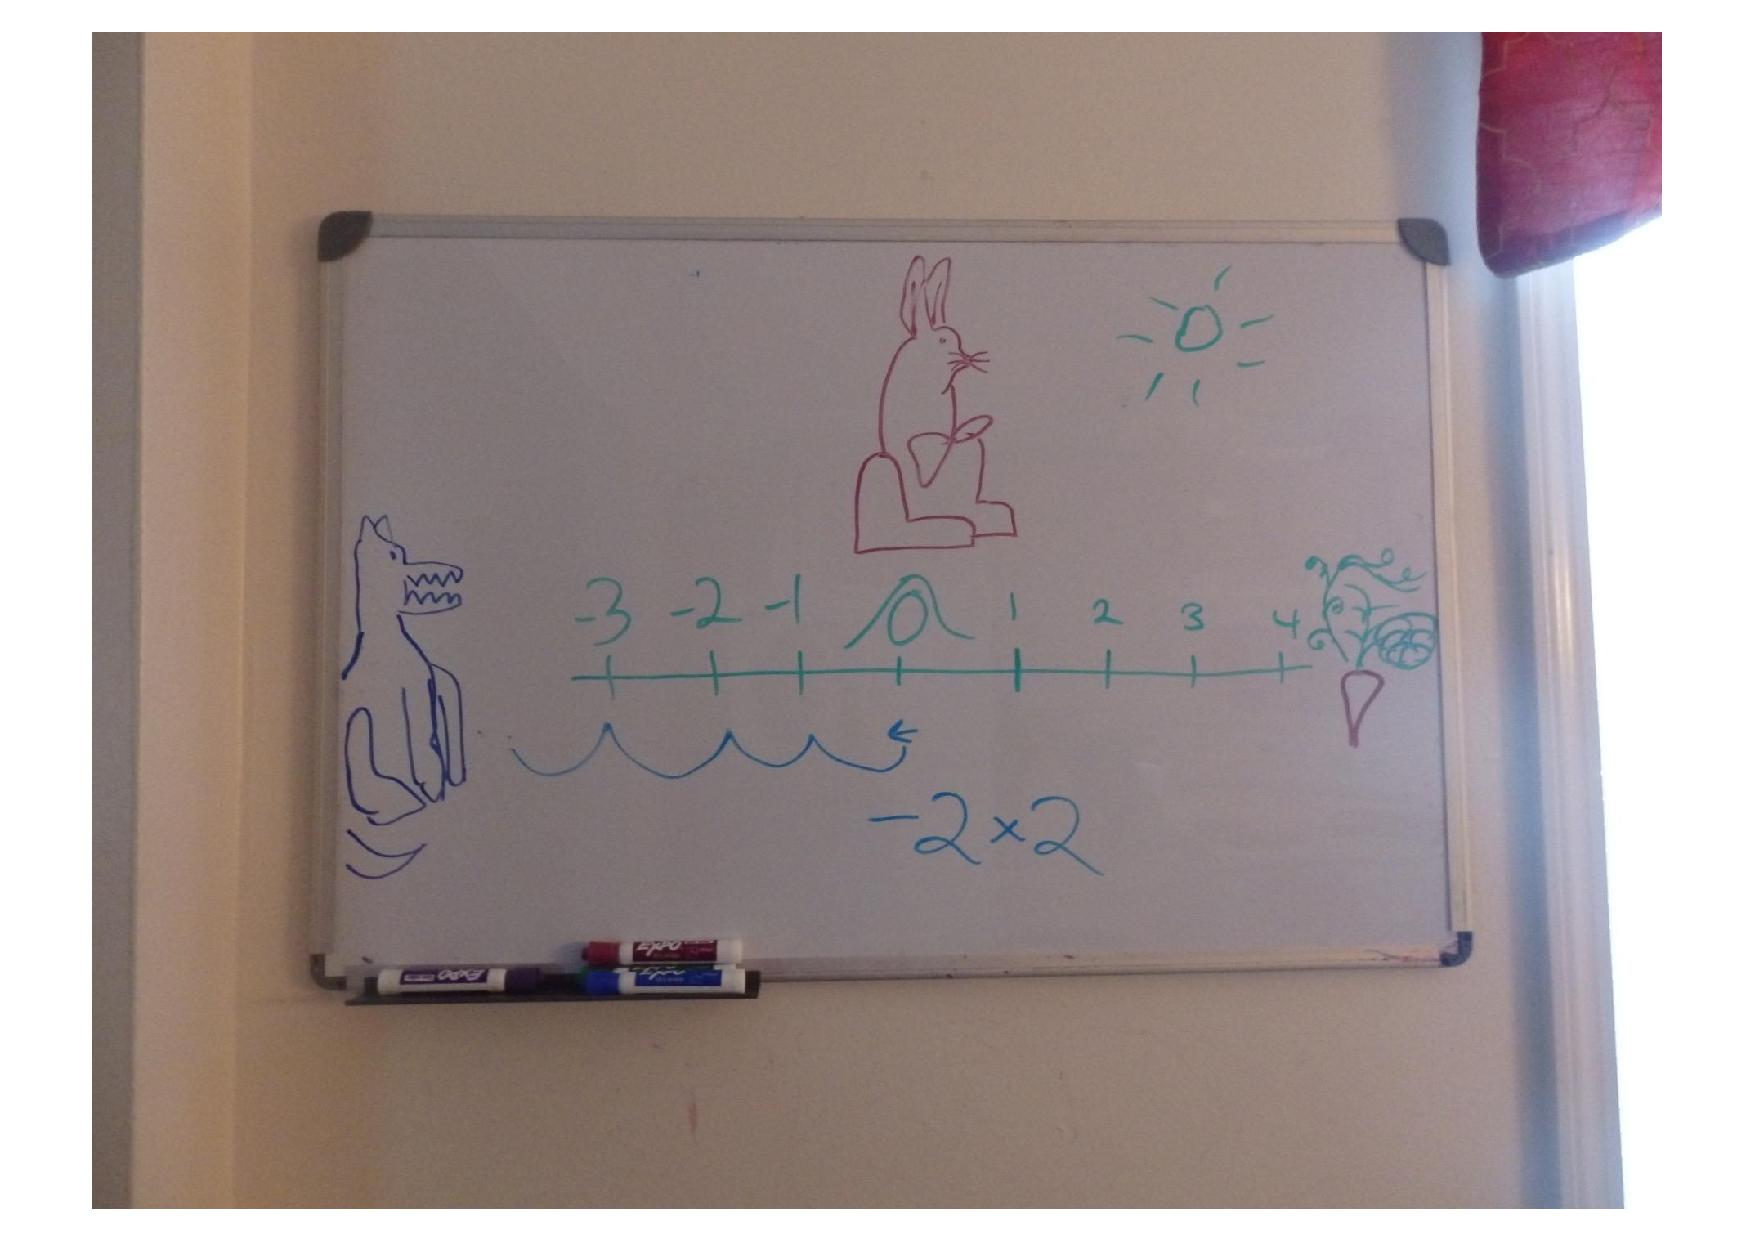 -3 -2 -1 0 1 2 3 4
-2 × 2
EXPO
EXPO EXPO